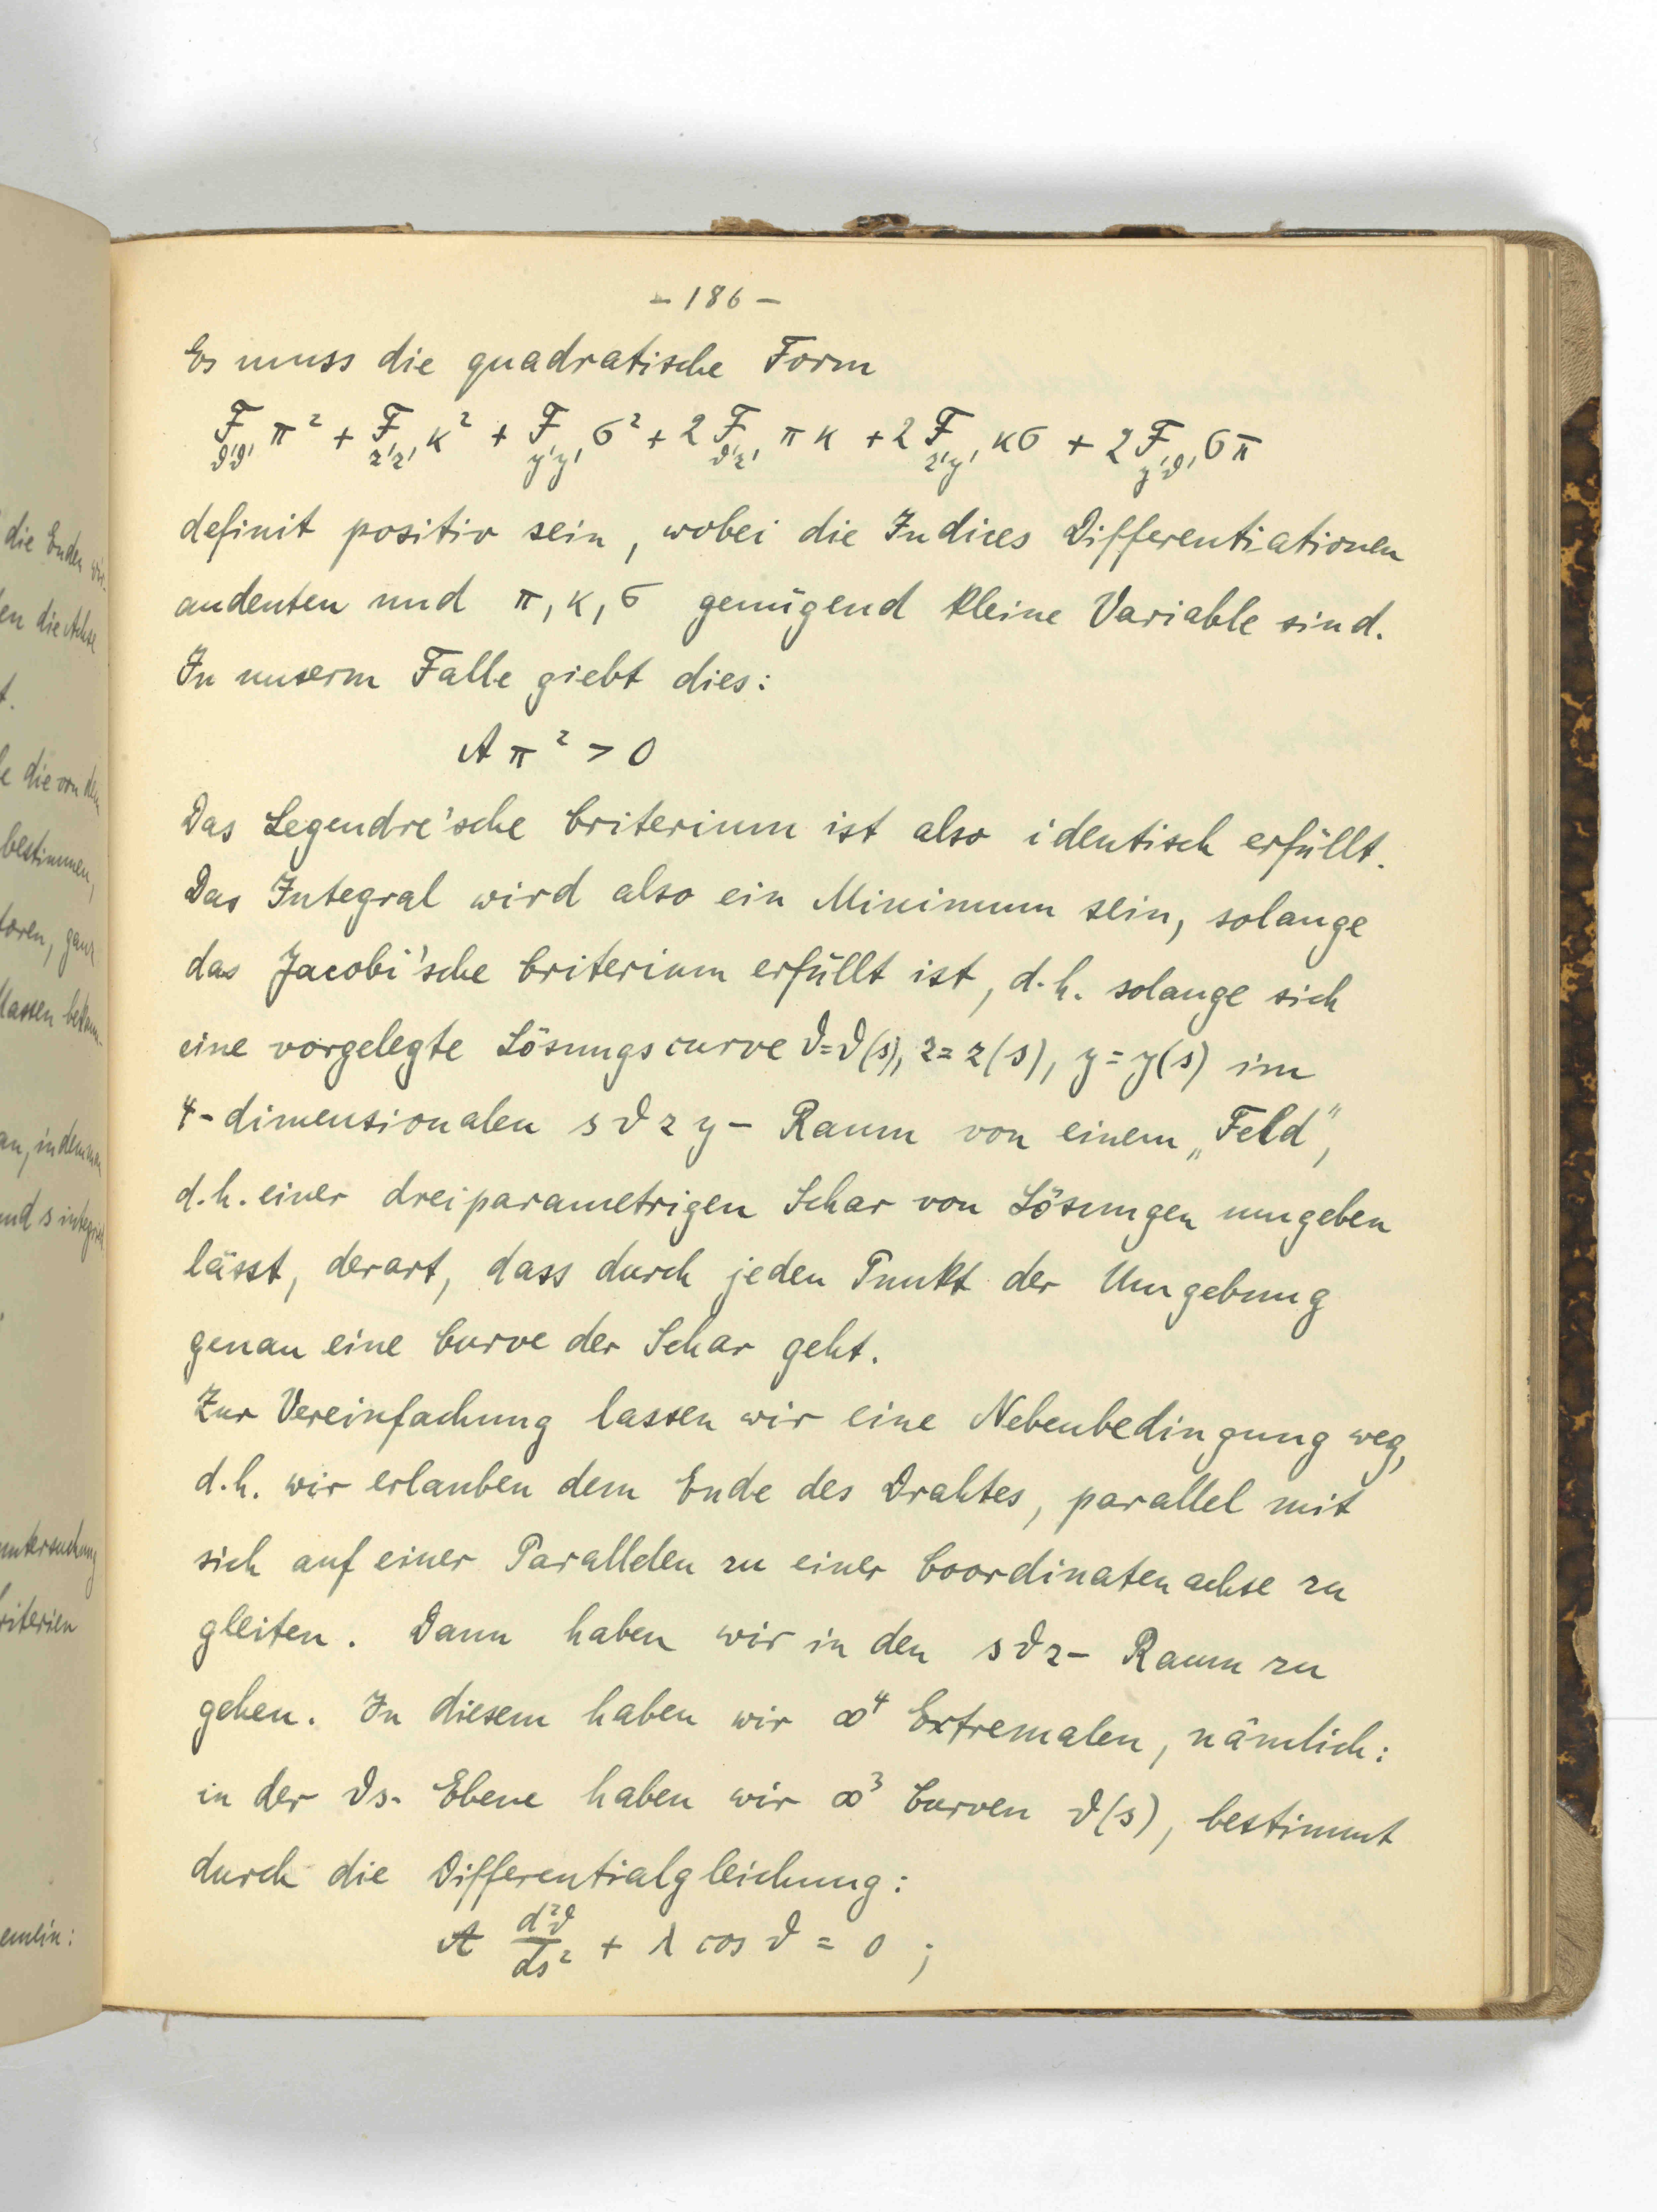 die Enden
en die Achse
t.
le die von dem
bestimmen,
toren, ganz
lassen
an, indem man
und s
untersuchung
riterien
emein:
- 186 -
Es muss die quadratische Form
F_{ϑ'ϑ'} π² + F_{z'z'} κ² + F_{y'y'} σ² + 2 F_{ϑ'z'} π κ + 2 F_{z'y'} κσ + 2 F_{y'ϑ'} σπ
definit positiv sein, wobei die Indices Differentiationen
andeuten und π, κ, σ genügend kleine Variable sind.
In unserm Falle giebt dies:
A π² > 0
Das Legendre'sche Criterium ist also identisch erfüllt.
Das Integral wird also ein Minimum sein, solange
das Jacobi'sche Criterium erfüllt ist, d.h. solange sich
eine vorgelegte Lösungscurve ϑ=ϑ(s), z=z(s), y=y(s) im
4-dimensionalen s ϑ z y - Raum von einem „Feld",
d.h. einer dreiparametrigen Schar von Lösungen umgeben
lässt, derart, dass durch jeden Punkt der Umgebung
genau eine Curve der Schar geht.
Zur Vereinfachung lassen wir eine Nebenbedingung weg,
d.h. wir erlauben dem Ende des Drahtes, parallel mit
sich auf einer Parallelen zu einer Coordinatenachse zu
gleiten. Dann haben wir in den sϑz- Raum zu
gehen. In diesem haben wir ∞⁴ Extremalen, nämlich:
in der ϑs- Ebene haben wir ∞³ Curven ϑ(s), bestimmt
durch die Differentialgleichung:
A d²ϑ/ds² + λ cos ϑ = 0 ;